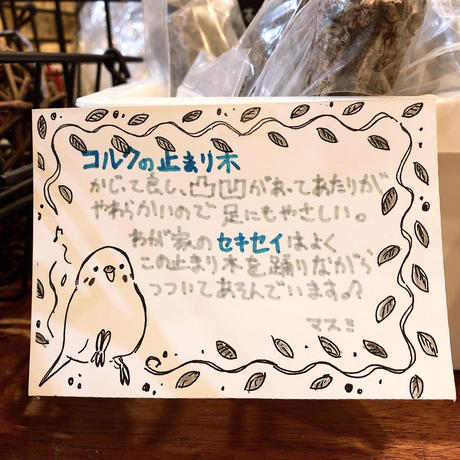 コルクの止まり木
かじって良し、凸凹があってあたりが
やわらかいので 足にもやさしい。
わが家のセキセイはよく
この止まり木を踊りながら
つついてあそんでいます。♪
マスミ